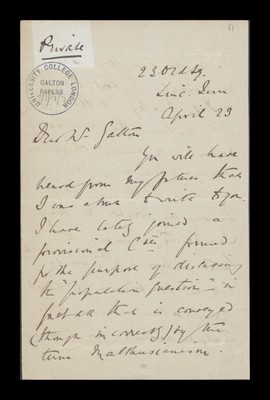 Private
UNIVERSITY COLLEGE LONDON
GALTON
PAPERS
23 Old Sq.
Linc. Inn
April 23
Dear Mr Galton
You will have
heard from my father that
I was about to write to you.
I have lately joined a
provisional Ctee formed
for the purpose of discussing
the "population question" in
fact all that is conveyed
(though incorrectly) by the
term Malthusianism.